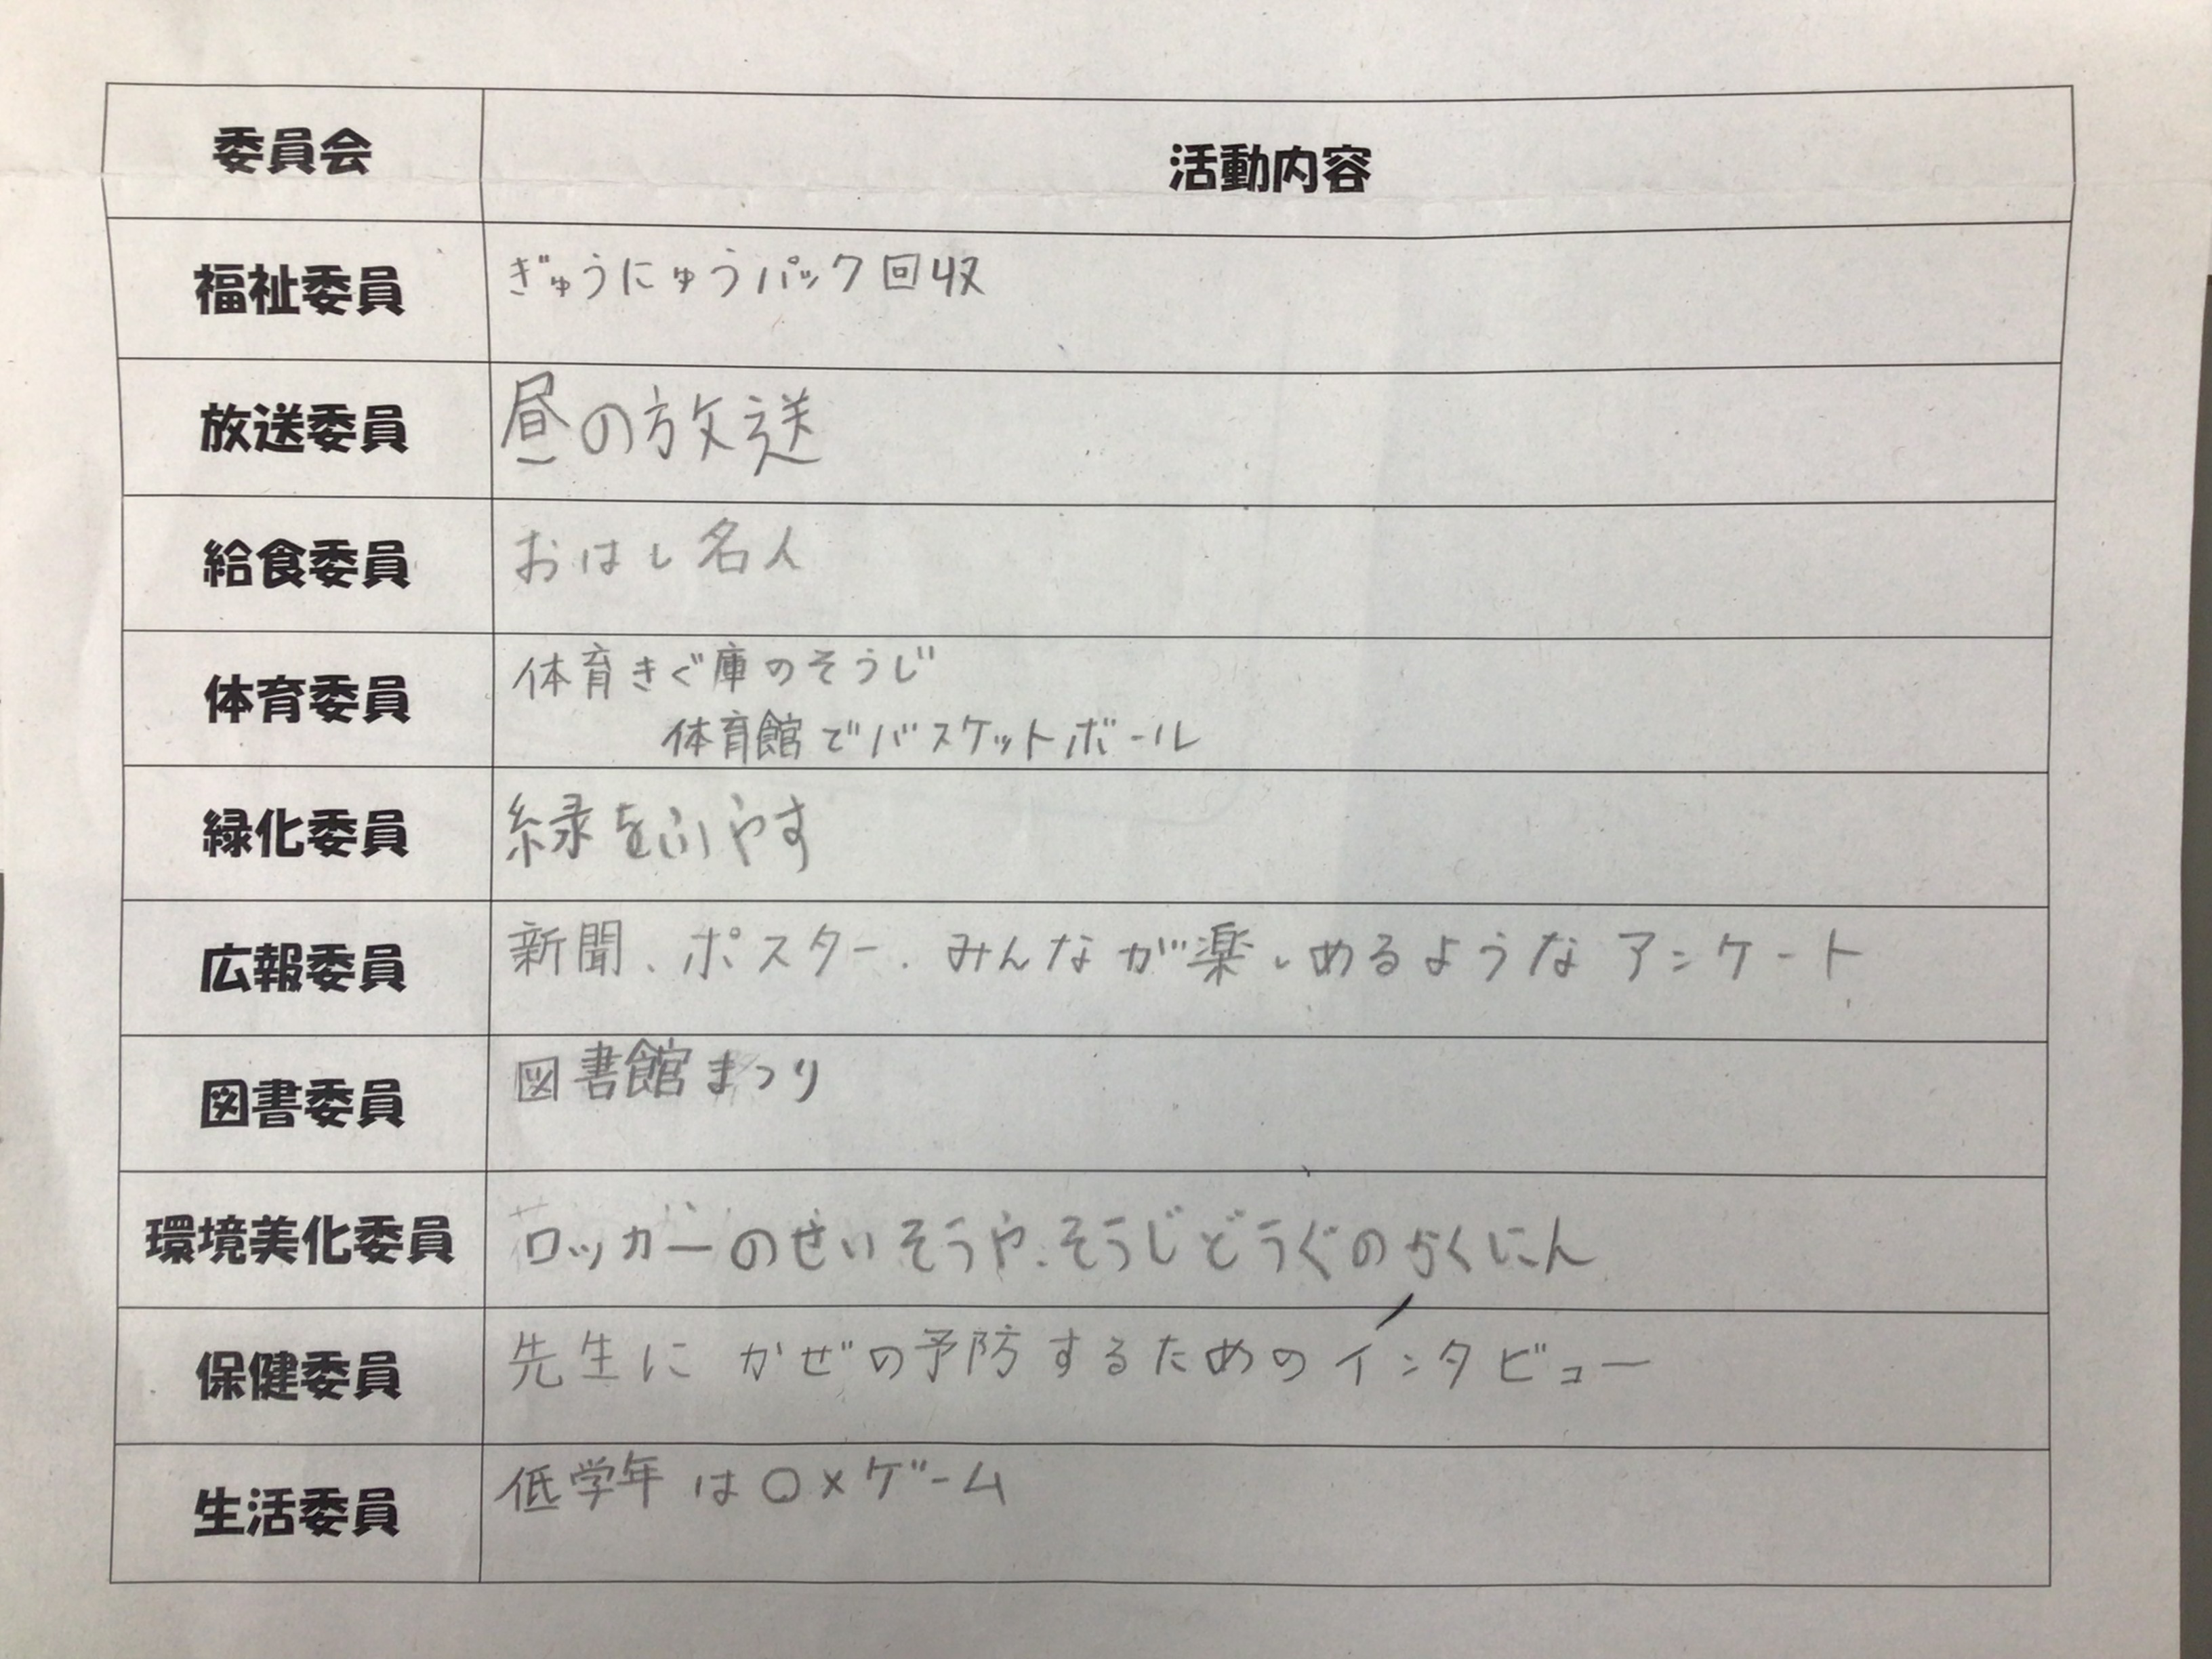 委員会 活動内容
福祉委員 ぎゅうにゅうパック回収
放送委員 昼の放送
給食委員 おはし名人
体育委員 体育きぐ庫のそうじ
体育館でバスケットボール
緑化委員 緑をふやす
広報委員 新聞、ポスター、みんなが楽しめるようなアンケート
図書委員 図書館まつり
環境美化委員 ロッカーのせいそうや、そうじどうぐのかくにん
保健委員 先生にかぜの予防するためのインタビュー
生活委員 低学年は○×ゲーム